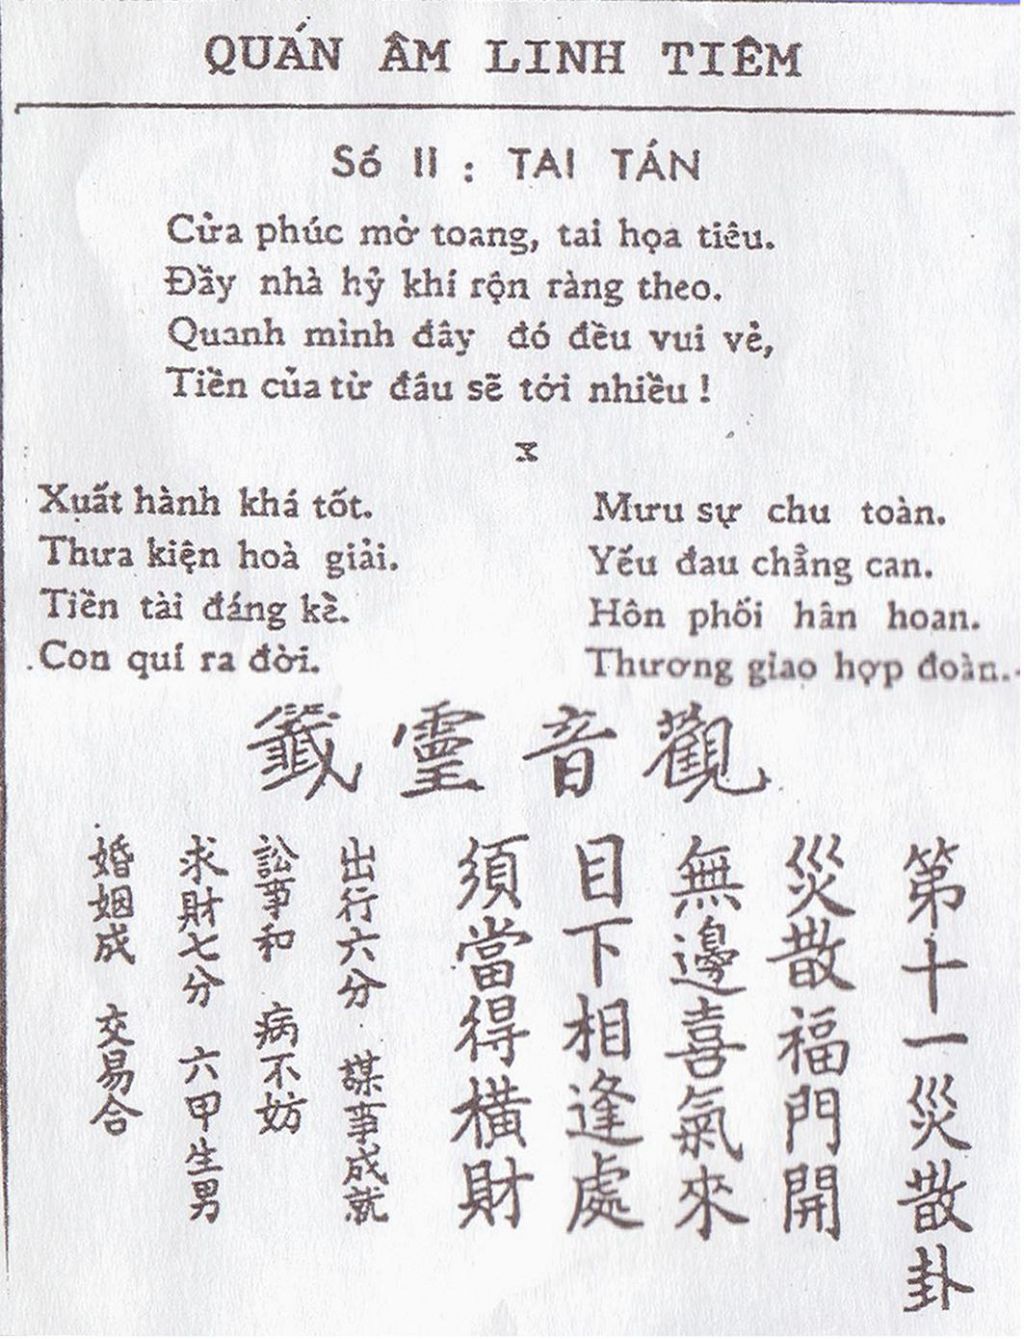 QUÁN ÂM LINH TIÊM
Số 11 : TAI TÁN
Cửa phúc mở toang, tai họa tiêu.
Đầy nhà hỷ khí rộn ràng theo.
Quanh mình đây đó đều vui vẻ,
Tiền của từ đâu sẽ tới nhiều !
x
Xuất hành khá tốt.
Thưa kiện hoà giải.
Tiền tài đáng kể.
Con quí ra đời.
Mưu sự chu toàn.
Yếu đau chẳng can.
Hôn phối hân hoan.
Thương giao hợp đoàn.
籤靈音觀
第十一災散卦
災散福門開
無邊喜氣來
目下相逢處
須當得橫財
出行六分 謀事成就
訟事和 病不妨
求財七分 六甲生男
婚姻成 交易合